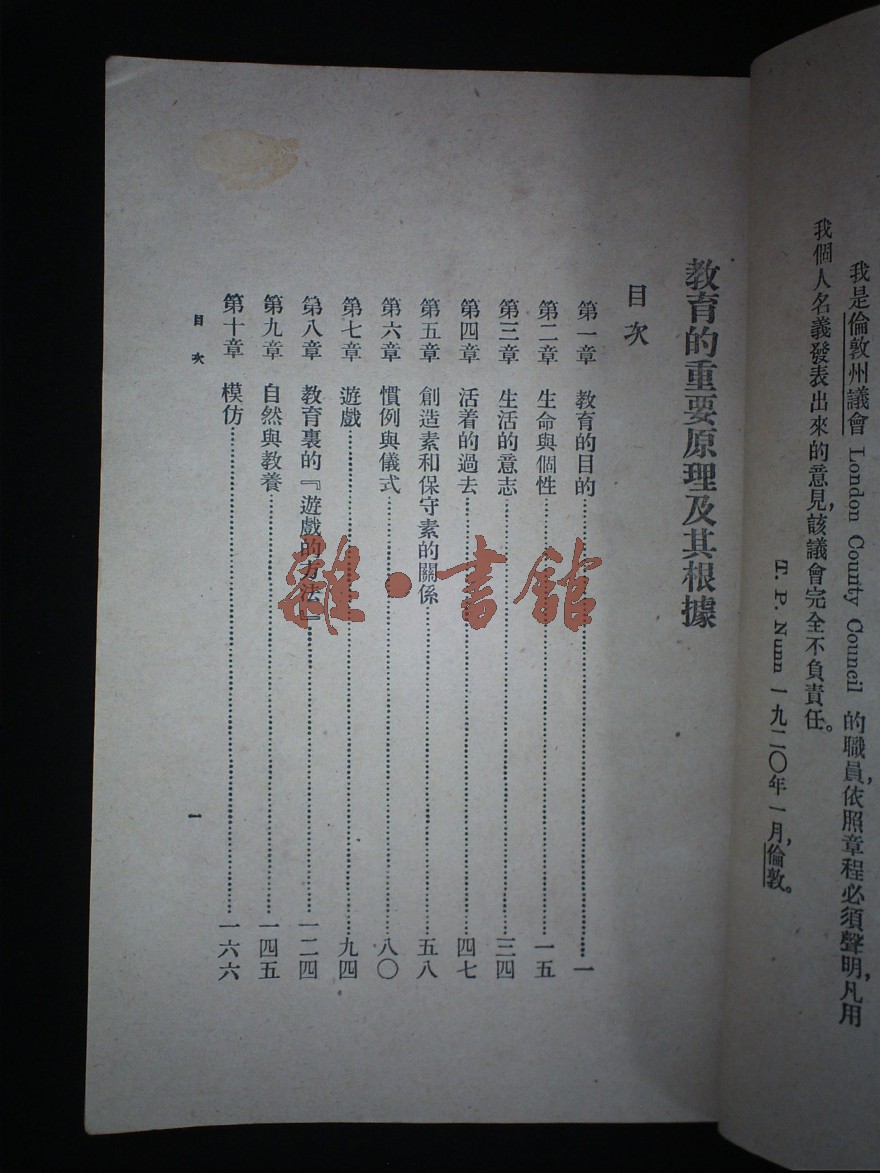 我是倫敦州議會 London County Council 的職員,依照章程必須聲明,凡用
我個人名義發表出來的意見,該議會完全不負責任。
T. P. Nunn 一九二〇年一月,倫敦。
教育的重要原理及其根據
目次
第一章 教育的目的 一
第二章 生命與個性 一五
第三章 生活的意志 三四
第四章 活着的過去 四七
第五章 創造素和保守素的關係 五八
第六章 慣例與儀式 八〇
第七章 遊戲 九四
第八章 教育裏的『遊戲的方法』 一二四
第九章 自然與教養 一四五
第十章 模仿 一六六
目次 一
雜·書館